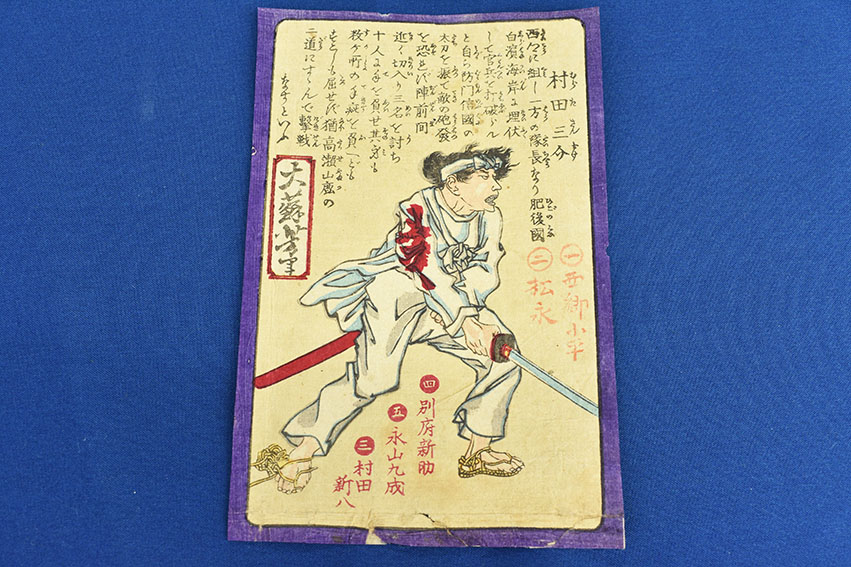 村田三介
西々に組し一方の隊長なり肥後國
白濱海岸に埋伏
して官兵を打破る
と自ら防門備國の
太刀を振て敵の砲發
を恐れず陣前間
近く切入り三名を討ち
十人に手を負せ其身も
数ケ所の手疵を負へども
すこしも屈せず猶高瀬山鹿の
二道にすゝんで撃戦
なすといふ
大蘇芳年
一 西郷小平
二 松永
四 別府新助
五 永山九成
三 村田
新八